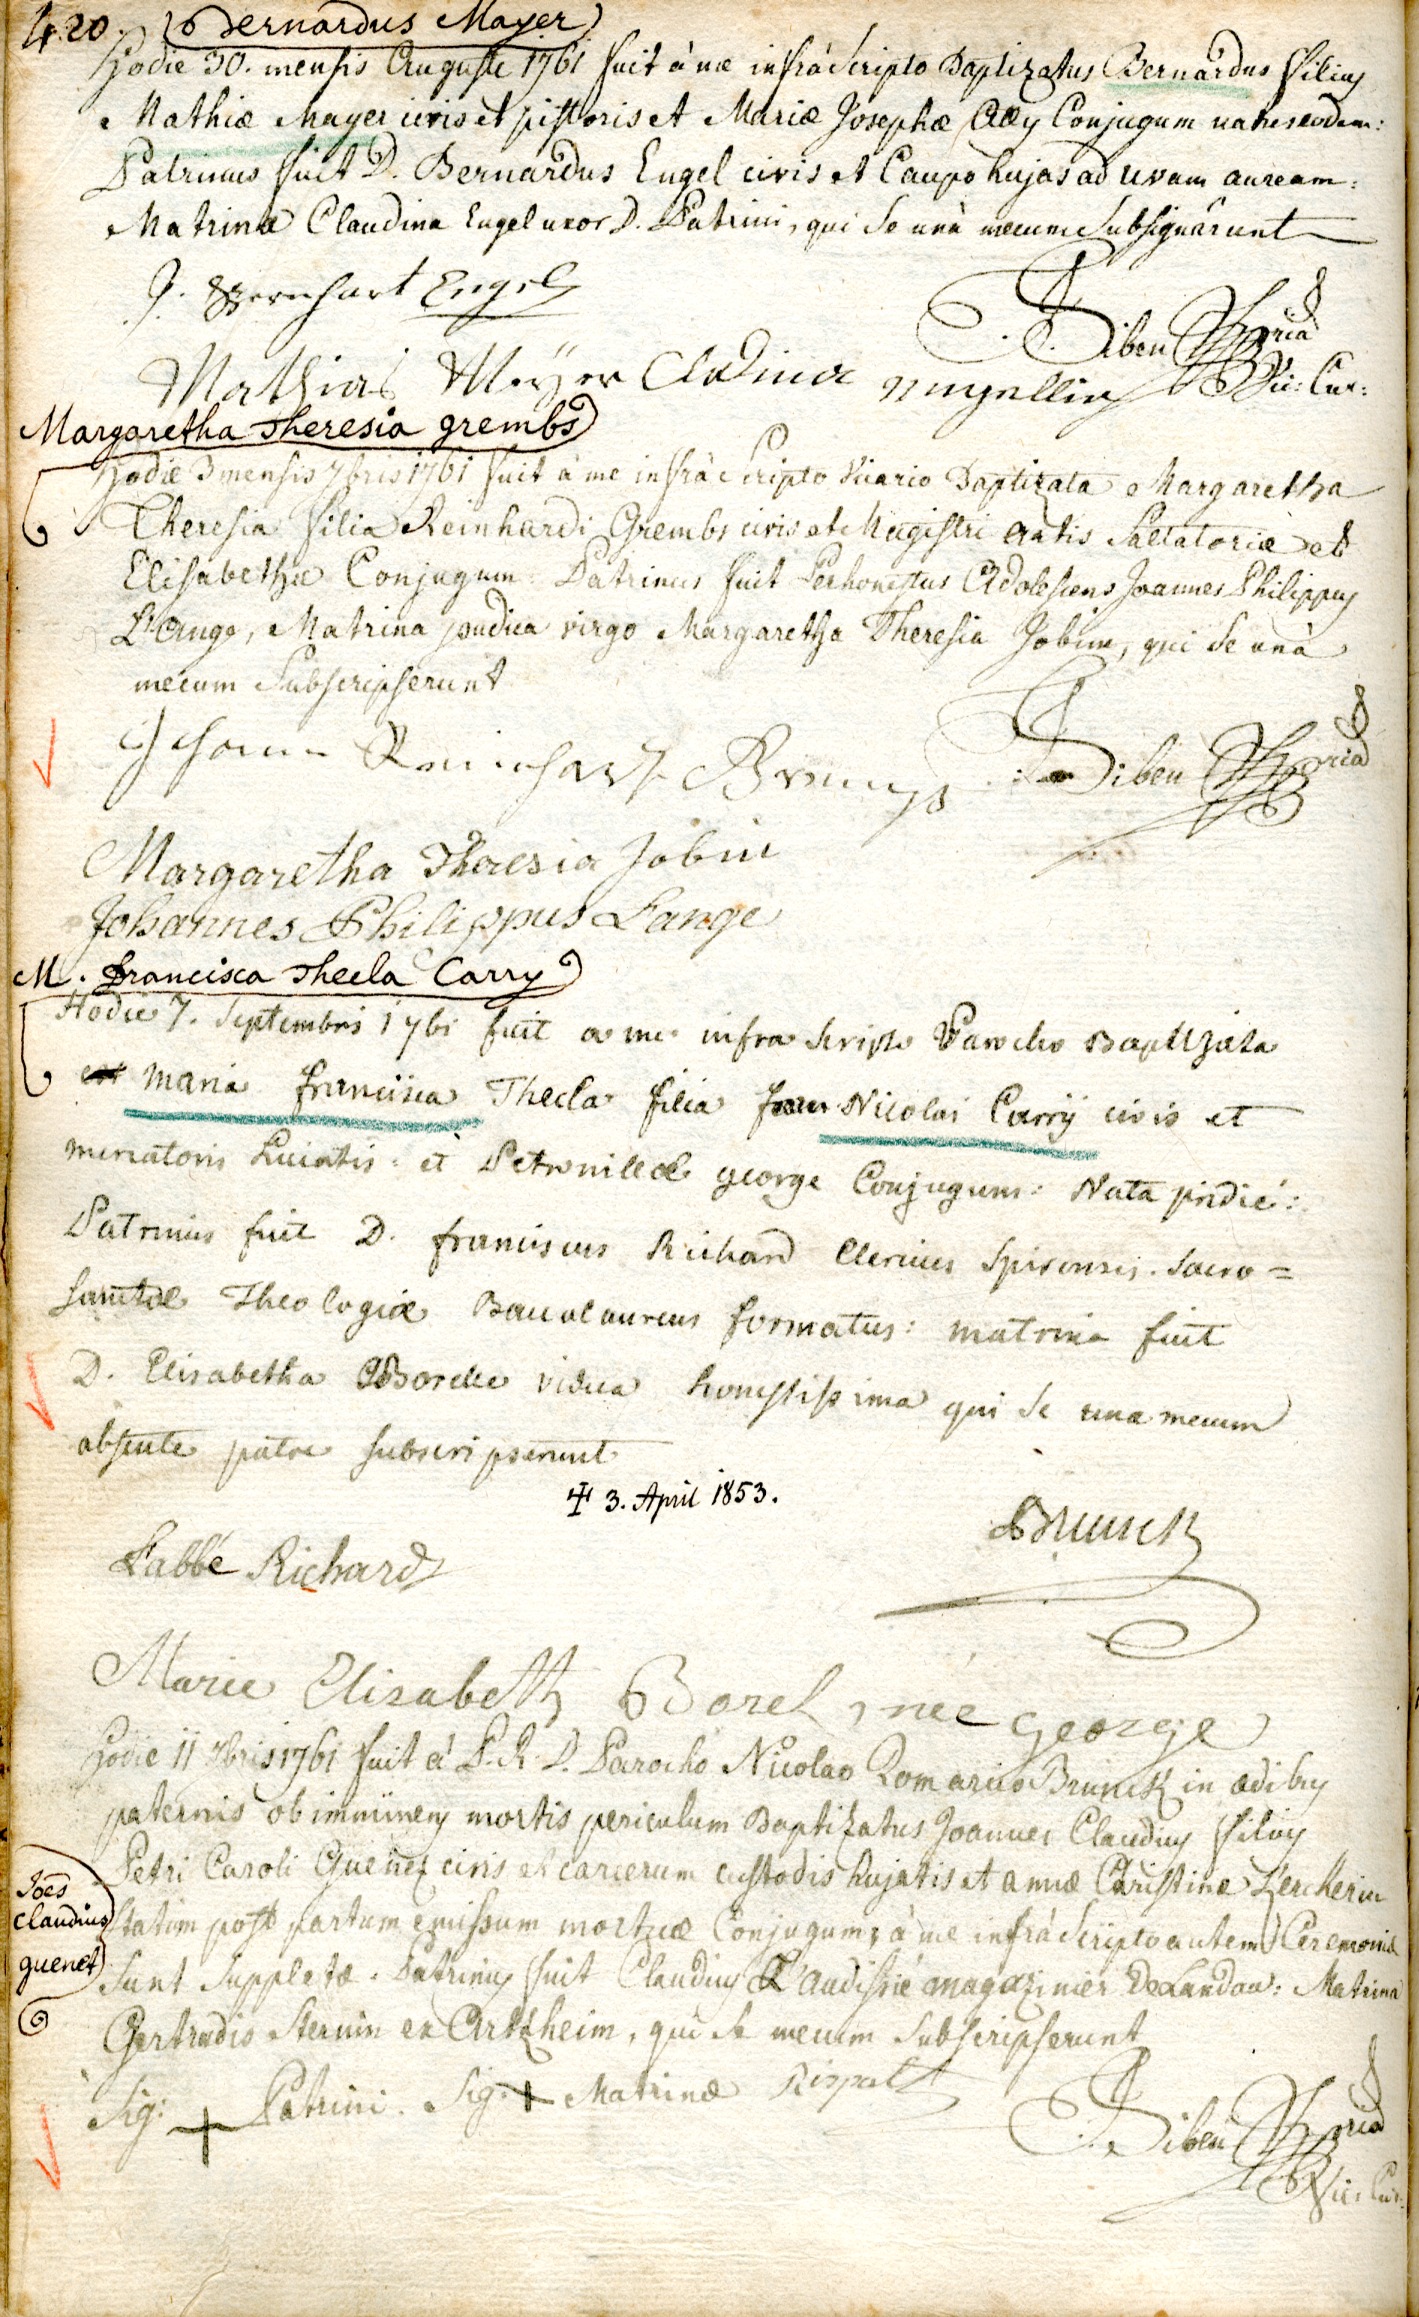 420. Bernardus Mayer
Hodie 30. mensis Augusti 1761 fuit à me infrà scripto Baptizatus Bernardus filius
Mathiæ Mayer civis et pistoris et Mariæ Josephæ Conjugum natus eodem:
Patrinus fuit D. Bernardus Engel civis et Caupo hujas ad uvam auream:
Matrina Claudina Engel uxor D. Patrini, qui se unà mecum subsignârunt
J. Bernhart Engel
Siben
Mathias Meÿer Cladina Engellin Vic: Cur:
Margaretha Theresia grembs
Hodie 3 mensis 7bris 1761 fuit à me infrà scripto Vicario Baptizata Margaretha
Theresia filia Reinhardi Grembs civis et Magistri artis Saltatoriæ et
Elisabethæ Conjugum: Patrinus fuit Perhonestus Adolescens Joannes Philippus
L'Ange, Matrina pudica virgo Margaretha Theresia Jobin, qui se unà
mecum subscripserunt
Johann Reinhart
Siben
Margaretha Theresia Jobin
Johannes Philippus Lange
M. Francisca Thecla Carry
Hodie 7. Septembris 1761 fuit a me infra scripto Parocho Baptizata
Maria francisca Thecla filia Nicolai Carrÿ civis et
mercatoris Lucatis: et Petronillæ george Conjugum: Nata pridie:
Patrinus fuit D. franciscus Richard Clericus Spirensis. Sacro=
sanctæ Theologiæ Baccalaureus formatus: matrina fuit
D. Elisabetha Borelle vidua honestissima qui se una mecum
absente patre subscripserunt
☩ 3. April 1853.
Brunck
L'abbé Richard
Marie Elisabeth Borel, née george
Hodie 11 7bris 1761 fuit à P. R. D. Parocho Nicolao Romarico Brunck in ædibus
paternis ob imminens mortis periculum Baptizatus Joannes Claudius filius
Petri Caroli Guenet civis et carcerum custodis hujatis et annæ Christinæ Lercherin
Joes
claudius
guenet
statim post partum emissum mortuæ Conjugum; à me infrà scripto autem Ceremoniæ
sunt suppletæ. Patrinus fuit Claudius L'audissié magazinier De Landau: Matrina
Gertrudis Sternin ex Artzheim, qui se mecum subscripserunt
Sig: + Patrini. Sig: + Matrinæ
Siben
Vic: Cur: